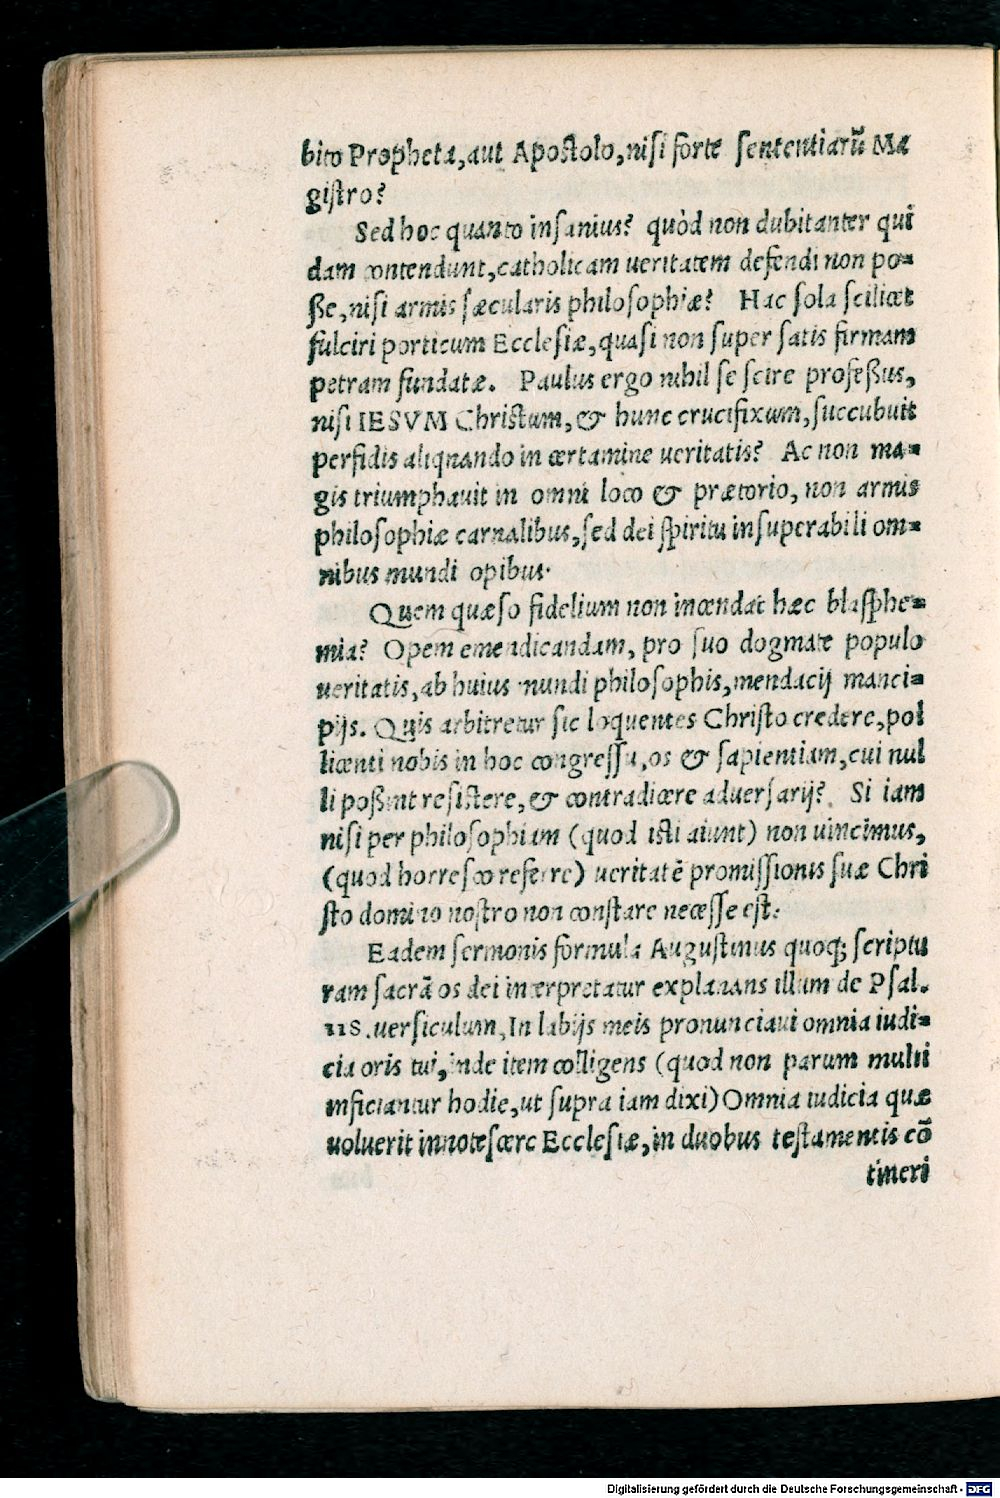 bito Propheta, aut Apostolo, nisi forte sententiarũ Ma
gistro?
Sed hoc quanto insanius? quòd non dubitanter qui
dam contendunt, catholicam ueritatem defendi non po=
ße, nisi armis sæcularis philosophiæ? Hac sola scilicet
fulciri porticum Ecclesiæ, quasi non super satis firmam
petram fundatæ. Paulus ergo nihil se scire profeßus,
nisi IESVM Christum, & hunc crucifixum, succubuit
perfidis aliqnando in certamine ueritatis? Ac non ma=
gis triumphauit in omni loco & prætorio, non armis
philosophiæ carnalibus, sed dei spiritu insuperabili om=
nibus mundi opibus.
Quem quæso fidelium non incendat hæc blasphe=
mia? Opem emendicandam, pro suo dogmate populo
ueritatis, ab huius mundi philosophis, mendacij manci=
pijs. Quis arbitretur sic loquentes Christo credere, pol
licenti nobis in hoc congressu, os & sapientiam, cui nul
li poßint resistere, & contradicere aduersarij? Si iam
nisi per philosophiam (quod isti aiunt) non uincimus,
(quod horresco referre) ueritatẽ promissionis suæ Chri
sto domino nostro non constare necesse est.
Eadem sermonis formula Augustinus quoq; scriptu
ram sacrã os dei interpretatur explanans illum de Psal.
118. uersiculum, In labijs meis pronunciaui omnia iudi=
cia oris tui, inde item colligens (quod non parum multi
inficiantur hodie, ut supra iam dixi) Omnia iudicia quæ
uoluerit innotescere Ecclesiæ, in duobus testamentis cõ
tineri
Digitalisierung gefördert durch die Deutsche Forschungsgemeinschaft - DFG